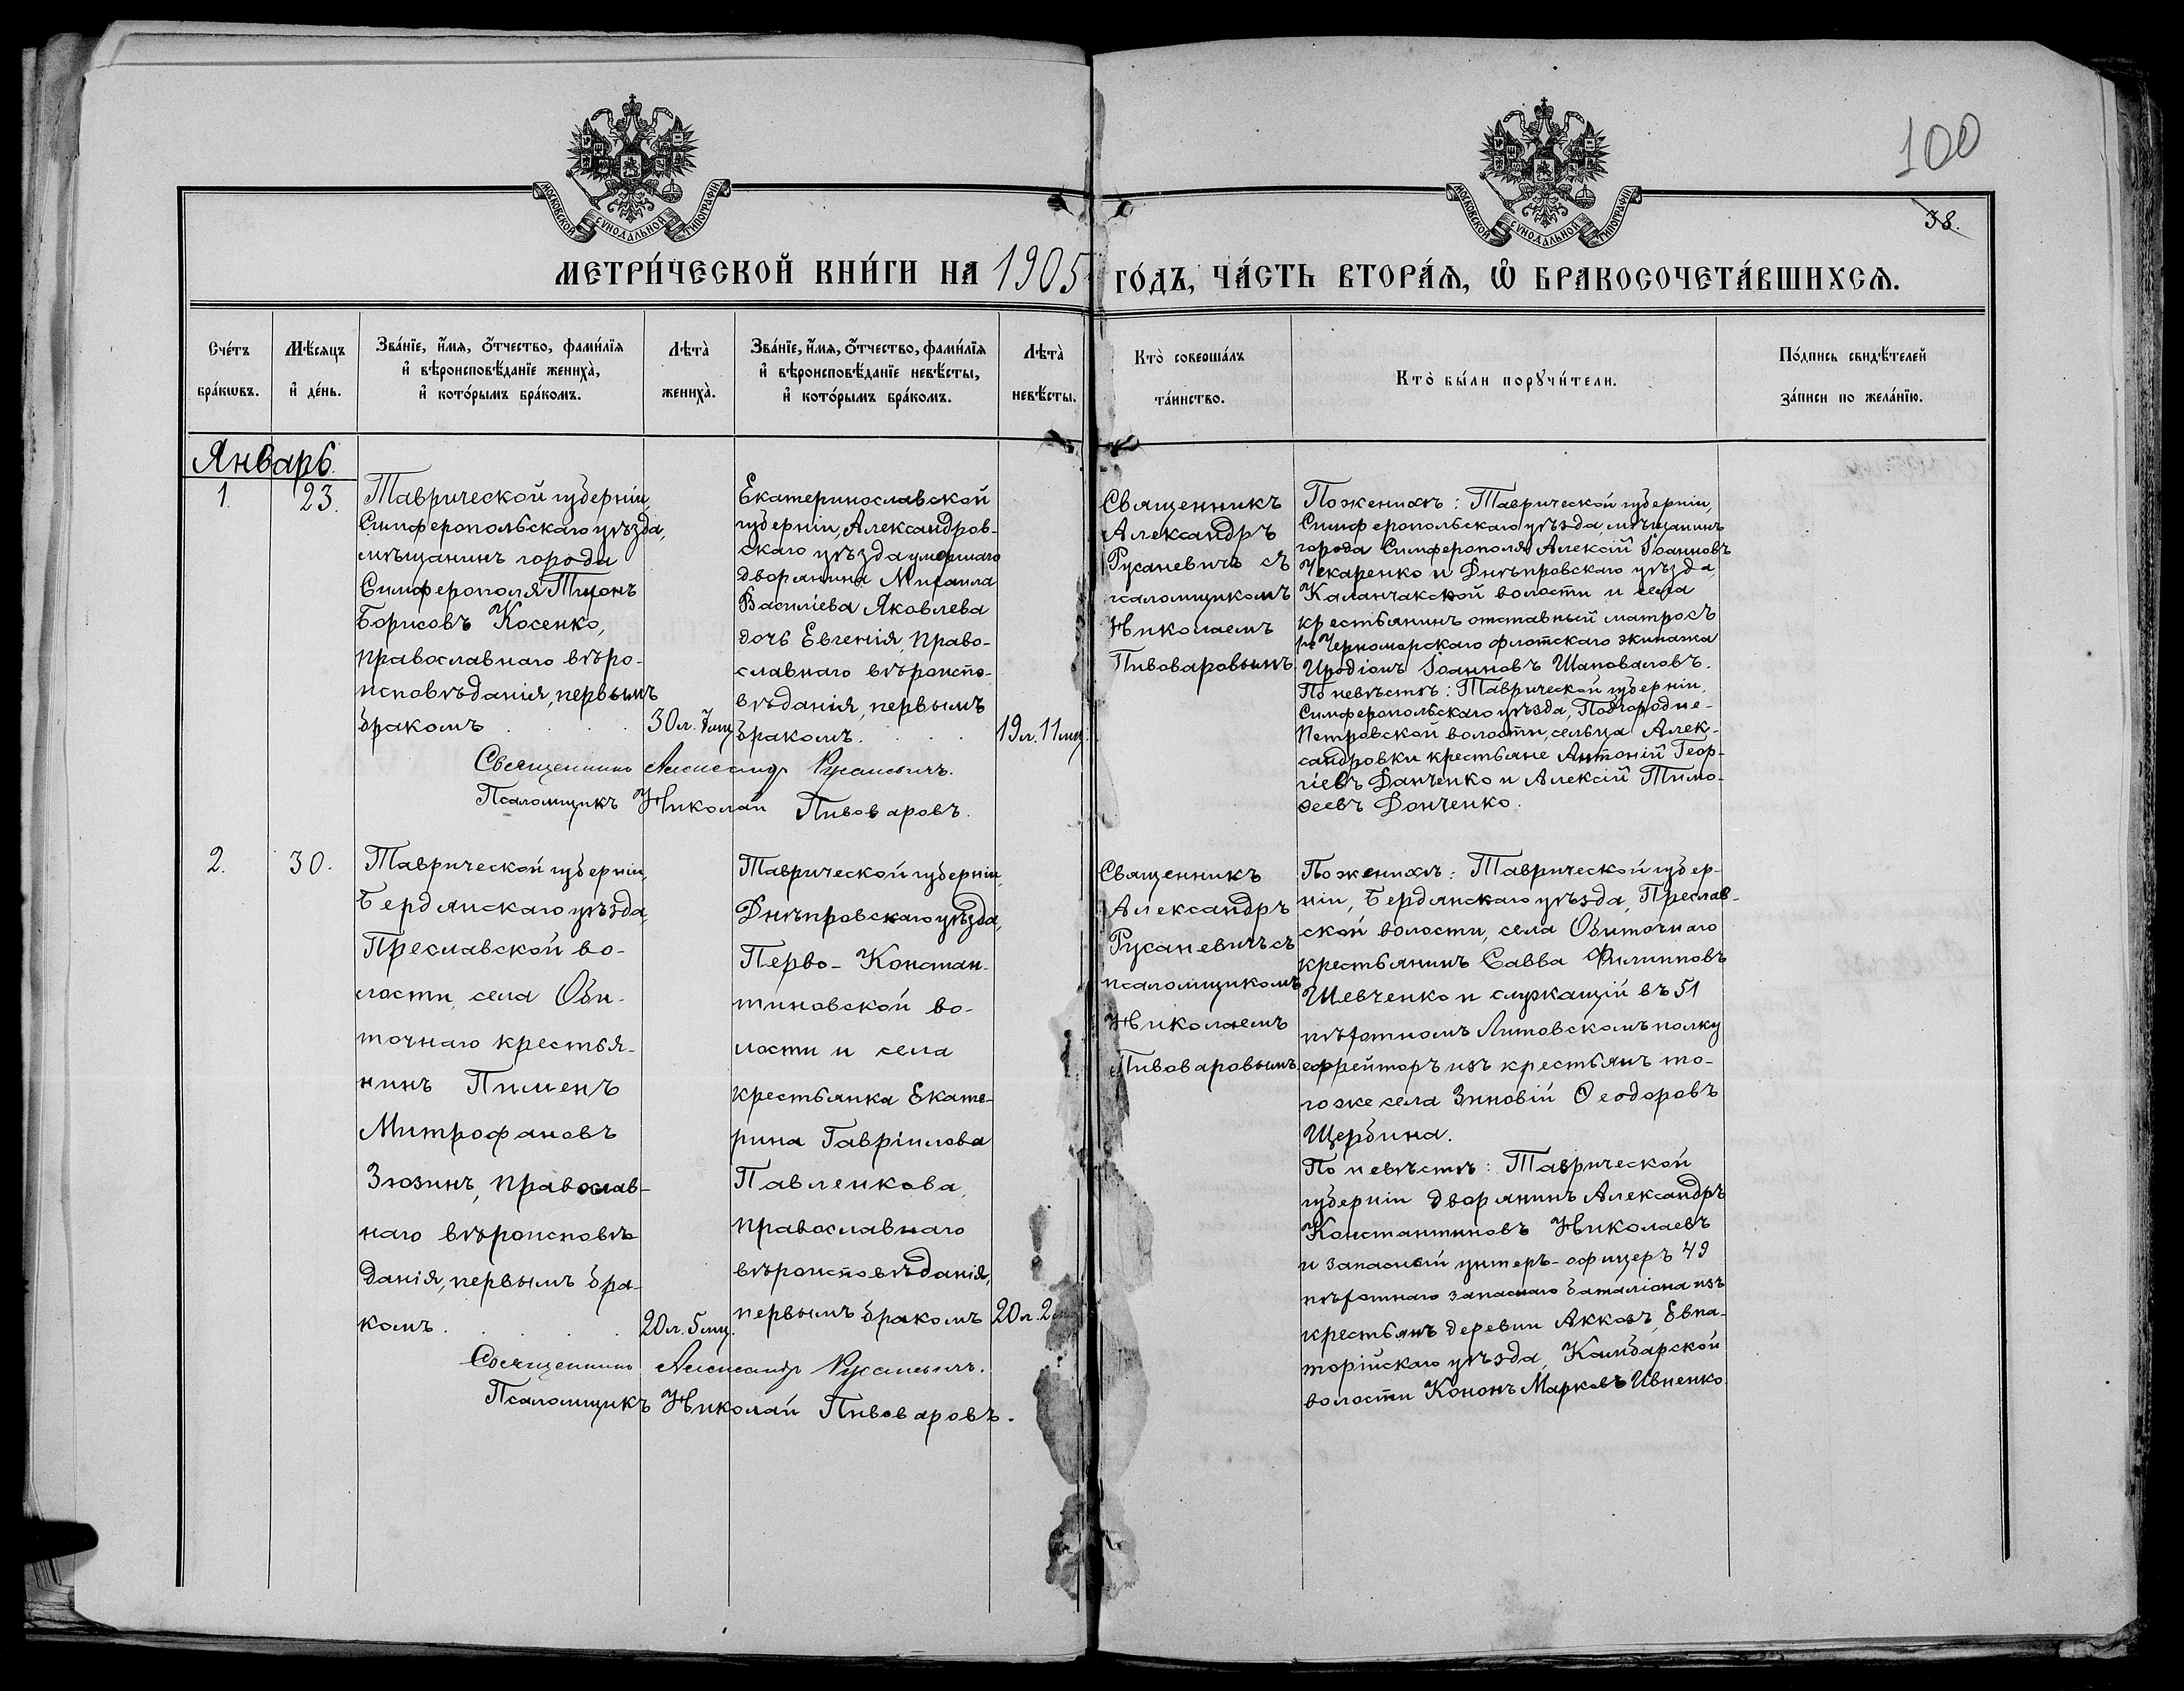 100
38.
МОСКОВСКОЙ СѴНОДАЛЬНОЙ ТИПОГРАФІИ
МОСКОВСКОЙ СѴНОДАЛЬНОЙ ТИПОГРАФІИ
МЕТРИ́ЧЕСКОЙ КНИ́ГИ НА 1905 ГО́ДЪ, ЧА́СТЬ ВТОРА́Ѧ, Ѽ БРАКОСОЧЕТА́ВШИХСѦ.
Сче́тъ
бра́кѡвъ.
Мѣ́сяцъ
и҆ де́нь.
Зва́нїе, и҆́мя, ѻ҆́тчество, фами́лїя
и҆ вѣроисповѣ́данїе жениха̀,
и҆ кото́рымъ бра́комъ.
Лѣта̀
жениха̀.
Зва́нїе, и҆́мя, ѻ҆́тчество, фами́лїя
и҆ вѣроисповѣ́данїе невѣ́сты,
и҆ кото́рымъ бра́комъ.
Лѣта̀
невѣ́сты.
Кто̀ соверша́лъ
та́инство.
Кто̀ бы́ли порꙋчи́тели.
По́дпись свидѣ́телей
за́писи по жела́нїю.
Январь.
1.
23.
Таврической губерніи,
Симферопольскаго уѣзда,
мѣщанинъ города
Симферополя
Борисовъ Косенко,
православнаго вѣро-
исповѣданія, первымъ
бракомъ
30 л. 7 мц.
Екатеринославской
губерніи, Александров-
скаго уѣзда умершаго
дворянина Михаила
Василіева Яковлева
дочь Евгенія, право-
славнаго вѣроиспо-
вѣданія, первымъ
бракомъ.
19 л. 11 мц.
Священникъ Александръ Русаневичъ.
Псаломщикъ Николай Пивоваровъ.
Священникъ
Александръ
Русаневичъ съ
псаломщикомъ
Николаемъ
Пивоваровымъ.
По женихѣ: Таврической губерніи,
Симферопольскаго уѣзда, мѣщанинъ
города Симферополя Алексій Іоанновъ
Чекаренко и Днѣпровскаго уѣзда,
Каланчакской волости и села
крестьянинъ отставный матросъ
Черноморскаго флотскаго экипажа
Иродіонъ Іоанновъ Шаповаловъ.
По невѣстѣ: Таврической губерніи,
Симферопольскаго уѣзда, Подгородне-
Петровской волости, сельца Алек-
сандровки крестьяне Антоній Геор-
гіевъ Данченко и Алексій Тимо-
ѳеевъ Донченко.
2.
30.
Таврической губерніи,
Бердянскаго уѣзда,
Преславской во-
лости, села Оби-
точнаго крестья-
нинъ Пименъ
Митрофановъ
Зюзинъ, православ-
наго вѣроисповѣ-
данія, первымъ бра-
комъ.
20 л. 5 мц.
Таврической губерніи,
Днѣпровскаго уѣзда,
Перво-Констан-
тиновской во-
лости и села
крестьянка Екате-
рина Гавріилова
Павленкова,
православнаго
вѣроисповѣданія,
первымъ бракомъ
20 л. 2
Священникъ Александръ Русаневичъ.
Псаломщикъ Николай Пивоваровъ.
Священникъ
Александръ
Русаневичъ съ
псаломщикомъ
Николаемъ
Пивоваровымъ.
По женихѣ: Таврической губер-
ніи, Бердянскаго уѣзда, Преслав-
ской волости, села Обиточнаго
крестьянинъ Савва Филипповъ
Шевченко и служащій въ 51
пѣхотномъ Литовскомъ полку
ефрейторъ изъ крестьянъ то-
го же села Зиновій Ѳеодоровъ
Щербина.
По невѣстѣ: Таврической
губерніи дворянинъ Александръ
Константиновъ Николаевъ
и запасный унтеръ-офицеръ 49
пѣхотнаго запаснаго баталіона изъ
крестьянъ деревни Аккозъ, Евпа-
торійскаго уѣзда, Камбарской
волости Кононъ Марковъ Ивненко.